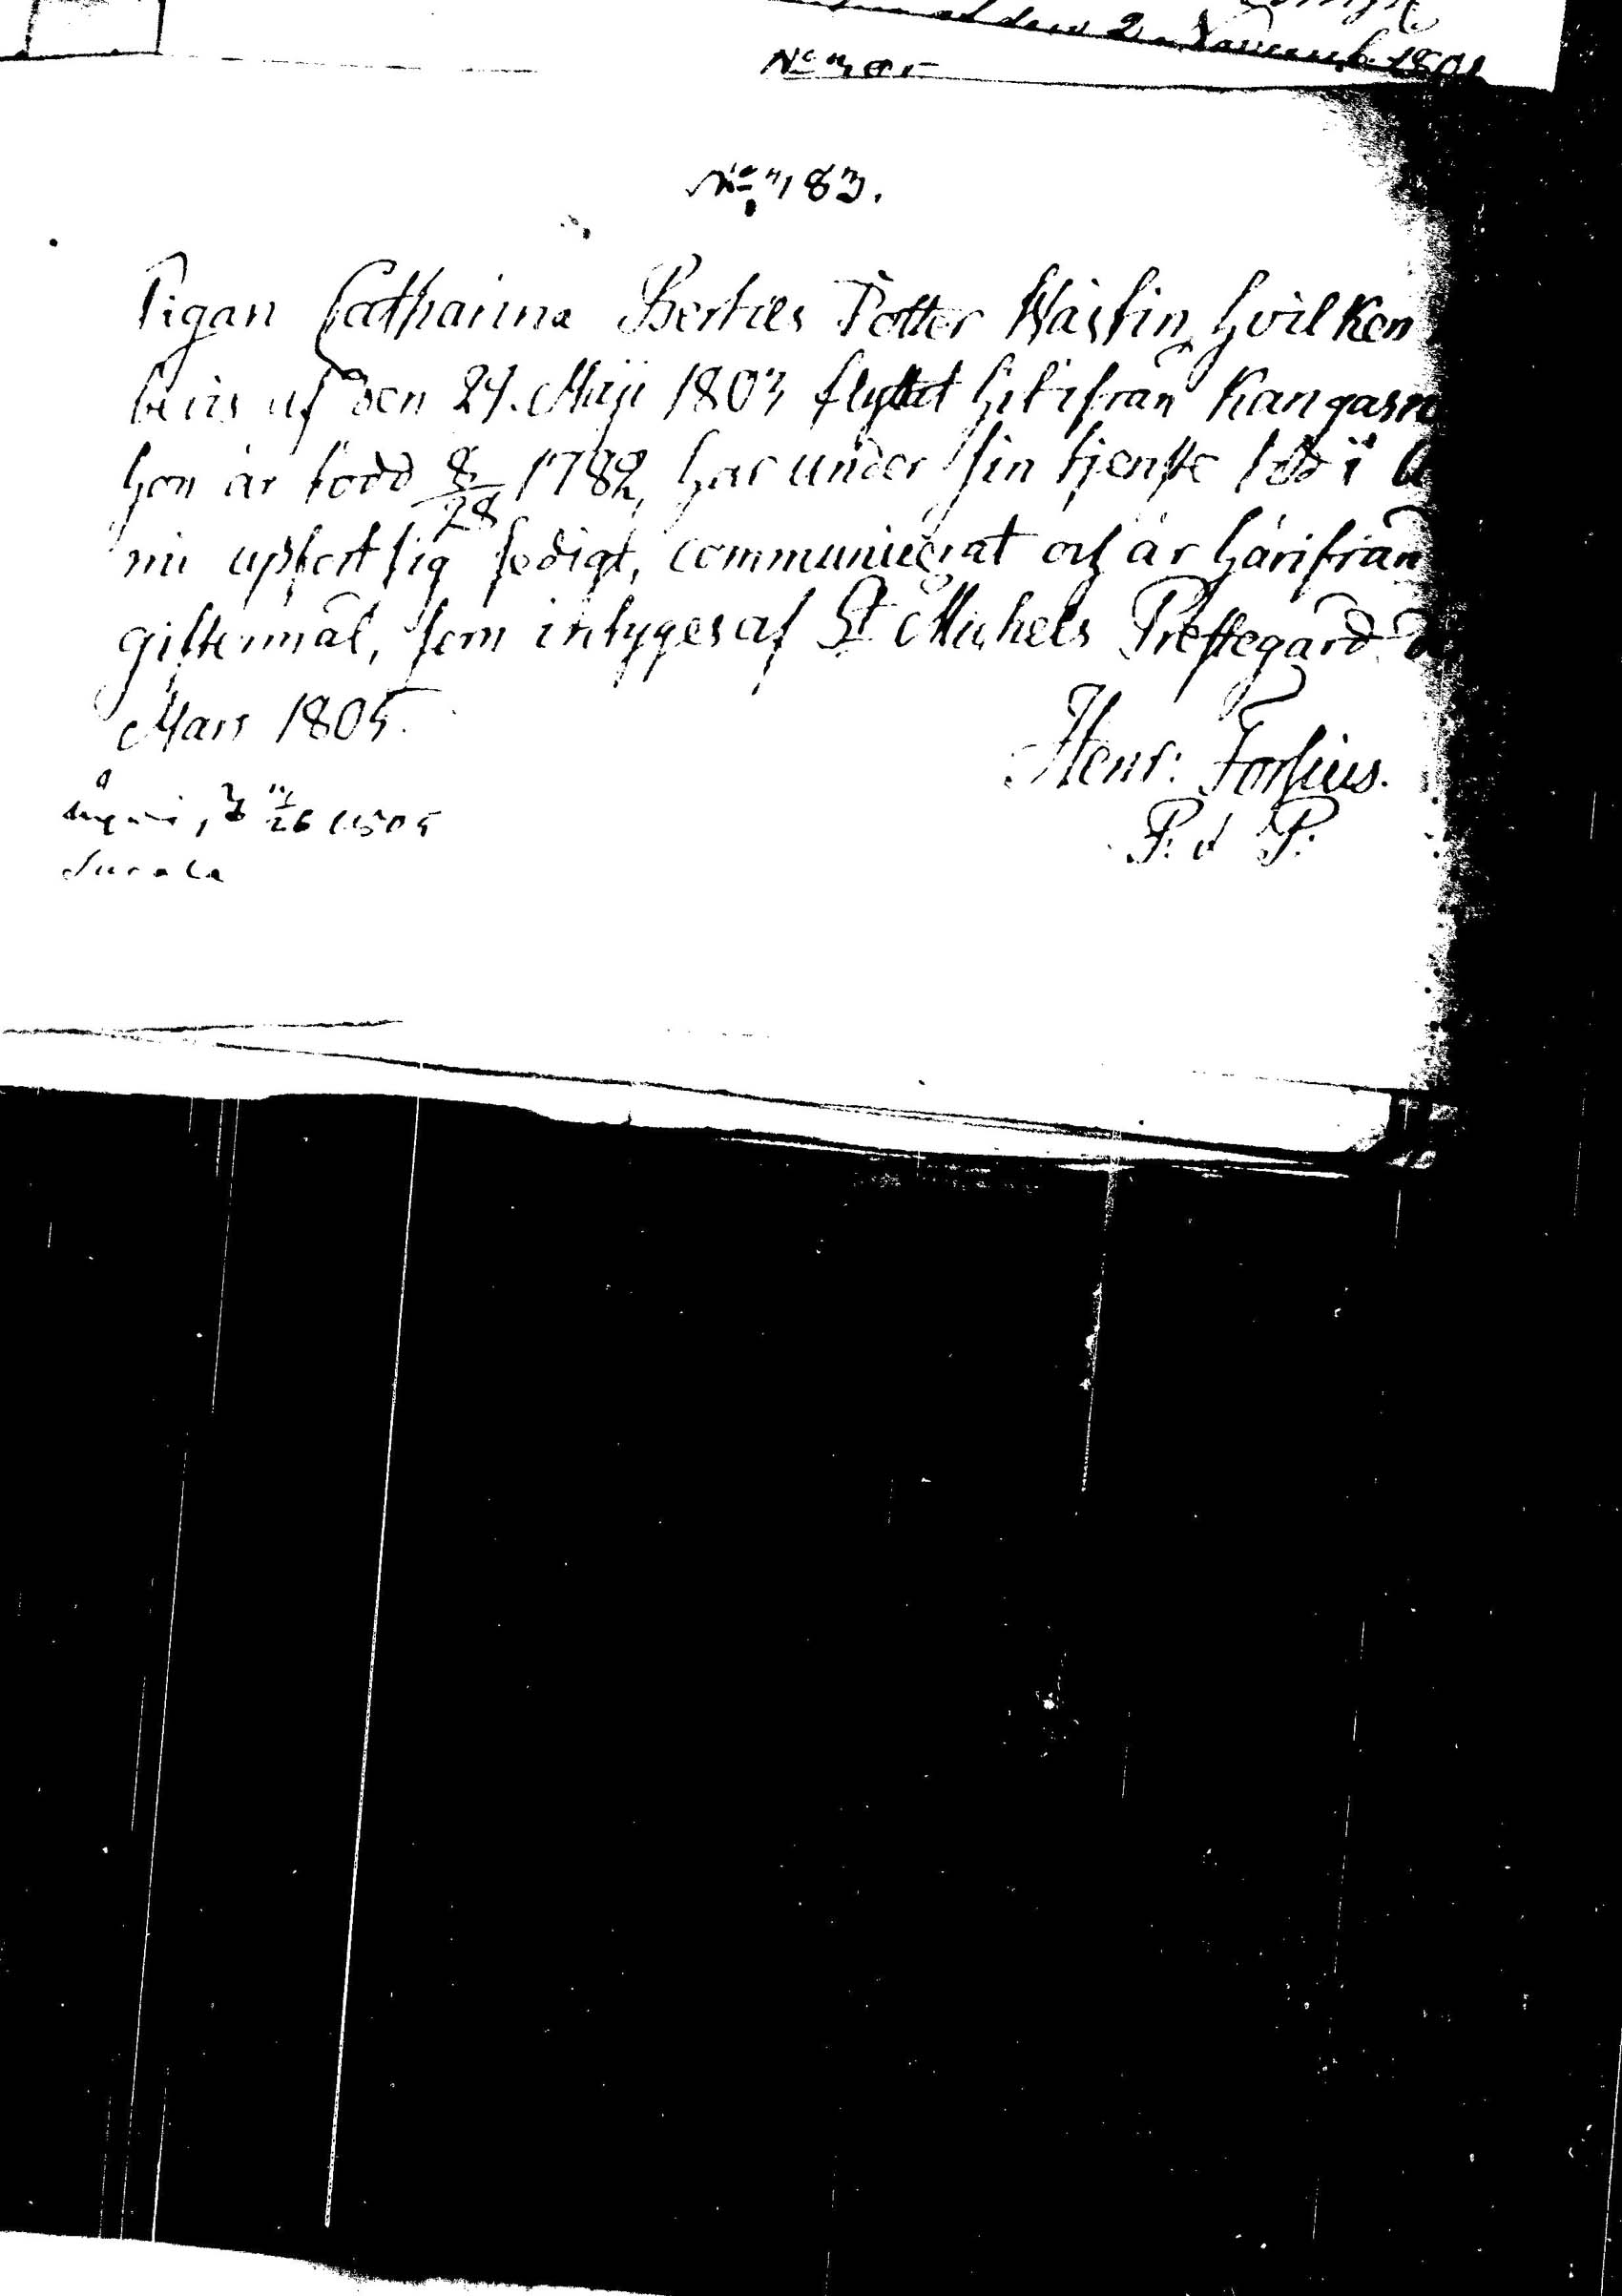 den 2 Novemb. 1801
No 305
No 183.
Pigan Catharina Bertils Dotter Häskin, hvilken
bevis af den 24. Maji 1803 flyttat hit ifrån Kangasn
hon är född 8/28 1782, har under sin tjenste tid i
nu upfört sig sedigt, communicerat och är härifrån
giftermål, som intygas af St Michels Prestegård d
Mars 1805.
Henr: Forsius.
P. d P:
1805